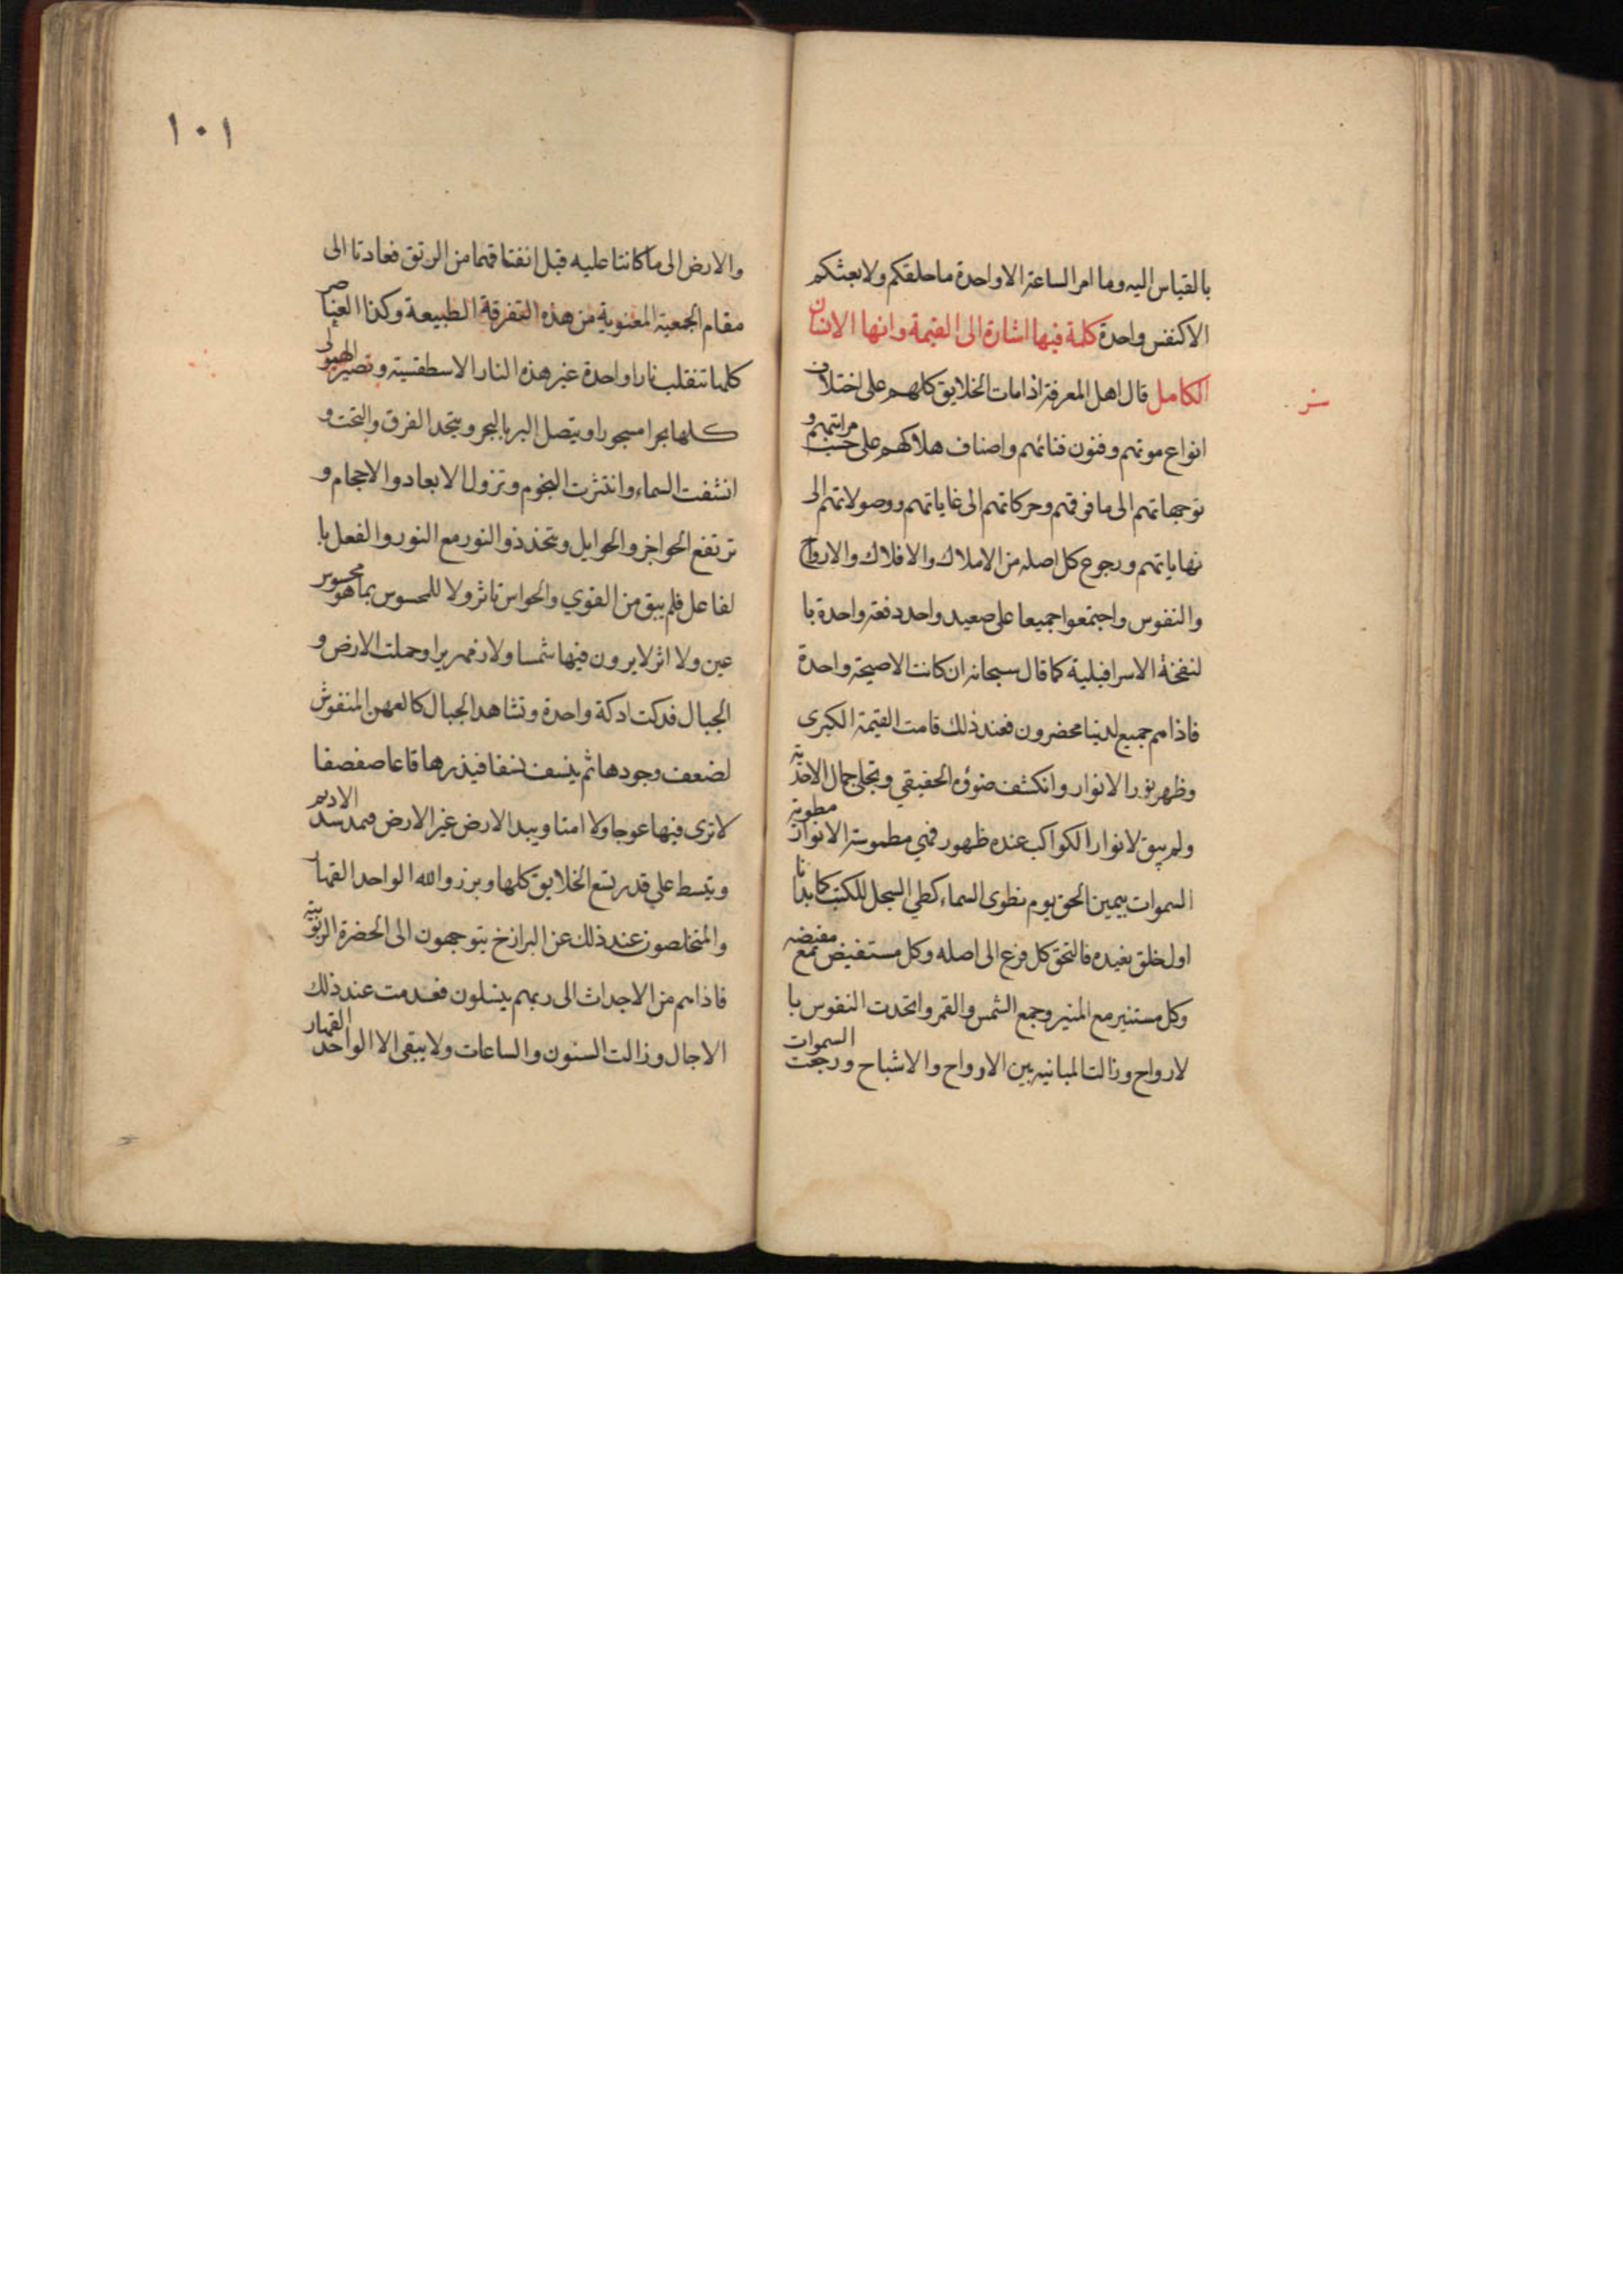 بالقياس اليه وما امر الساعة الا واحدة ما خلقكم ولا بعثكم
الا كنفس واحدة كلمة فيها اشارة الى القيمة وانها الانسان
الكامل قال اهل المعرفة اذا مات الخلايق كلهم على اختلاف
انواع موتهم وفنون فنائهم واصناف هلاكهم على حسب مراتبهم و
توجهاتهم الى ما فوقهم وحركاتهم الى غاياتهم ووصولاتهم الى
نهاياتهم ورجوع كل اصله من الاملاك والافلاك والارواح
والنفوس واجتمعوا جميعا على صعيد واحد دفعة واحدة با
لنفخة الاسرافيلية كما قال سبحانه ان كانت الا صيحة واحدة
فاذا هم جميع لدينا محضرون فعند ذلك قامت القيمة الكبرى
وظهر نور الانوار وانكشف ضوؤه الحقيقي وتجلى جمال الاحدية
ولم يبق لانوار الكواكب عنده ظهور فهي مطموسة الانوار مطوية
السموات بيمين الحق يوم نطوى السماء كطي السجل للكتب كما بدانا
اول خلق نعيده فالتحق كل فرع الى اصله وكل مستفيض مع مفيضه
وكل مستنير مع المنير وجمع الشمس والقمر واتحدت النفوس با
لارواح وزالت المباينه بين الارواح والاشباح ورجعت السموات
١٠١
والارض الى ما كانتا عليه قبل انفتاقهما من الرتق فعادتا الى
مقام الجمعية المعنوية من هذه التفرقة الطبيعة وكذا العناصر
كلها تنقلب نارا واحدة غير هذه النار الاسطقسية وتصير الهيولى
كلها بحرا مسجورا ويتصل البر بالبحر ويتحد الفرق والتحت و
انشقت السماء وانتثرت النجوم وتزول الابعاد والاحجام و
ترتفع الحواجز والحوايل ويتحد ذو النور مع النور والفعل با
لفاعل فلم يبق من القوي والحواس تاثر ولا للمحسوس بما هو محسوس
عين ولا اثر لا يرون فيها شمسا ولا زمهريرا وحملت الارض و
الجبال فدكتا دكة واحدة وتشاهد الجبال كالعهن المنفوش
لضعف وجودها ثم ينسف نسفا فيذرها قاعا صفصفا
لا ترى فيها عوجا ولا امتا ويبدل الارض غير الارض فيمد مد الاديم
ويبسط علي قدر يسع الخلايق كلها وبرزوا لله الواحد القهار
والمتخلصون عند ذلك عن البرازخ يتوجهون الى الحضرة الربوبية
فاذا هم من الاجداث الى ربهم ينسلون فعدمت عند ذلك
الاجال وزالت السنون والساعات ولا يبقى الا الواحد القهار